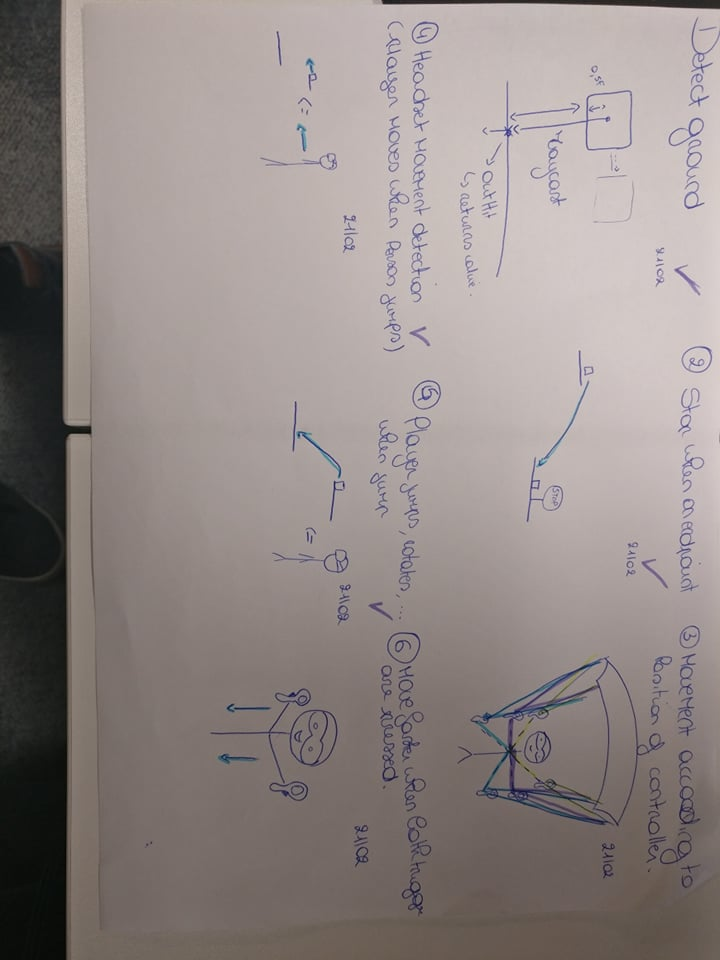 Detect ground
21/02
0,5f
raycast
outHit
↳ returns value.
② Stop when on endpoint
21/02
STOP
③ Movement according to
Position of controller.
21/02
④ Headset movement detection
(Player moves when Person jumps)
21/02
⑤ Player jumps, rotates, ...
when jump
21/02
⑥ Move faster when both trigger
are pressed.
21/02